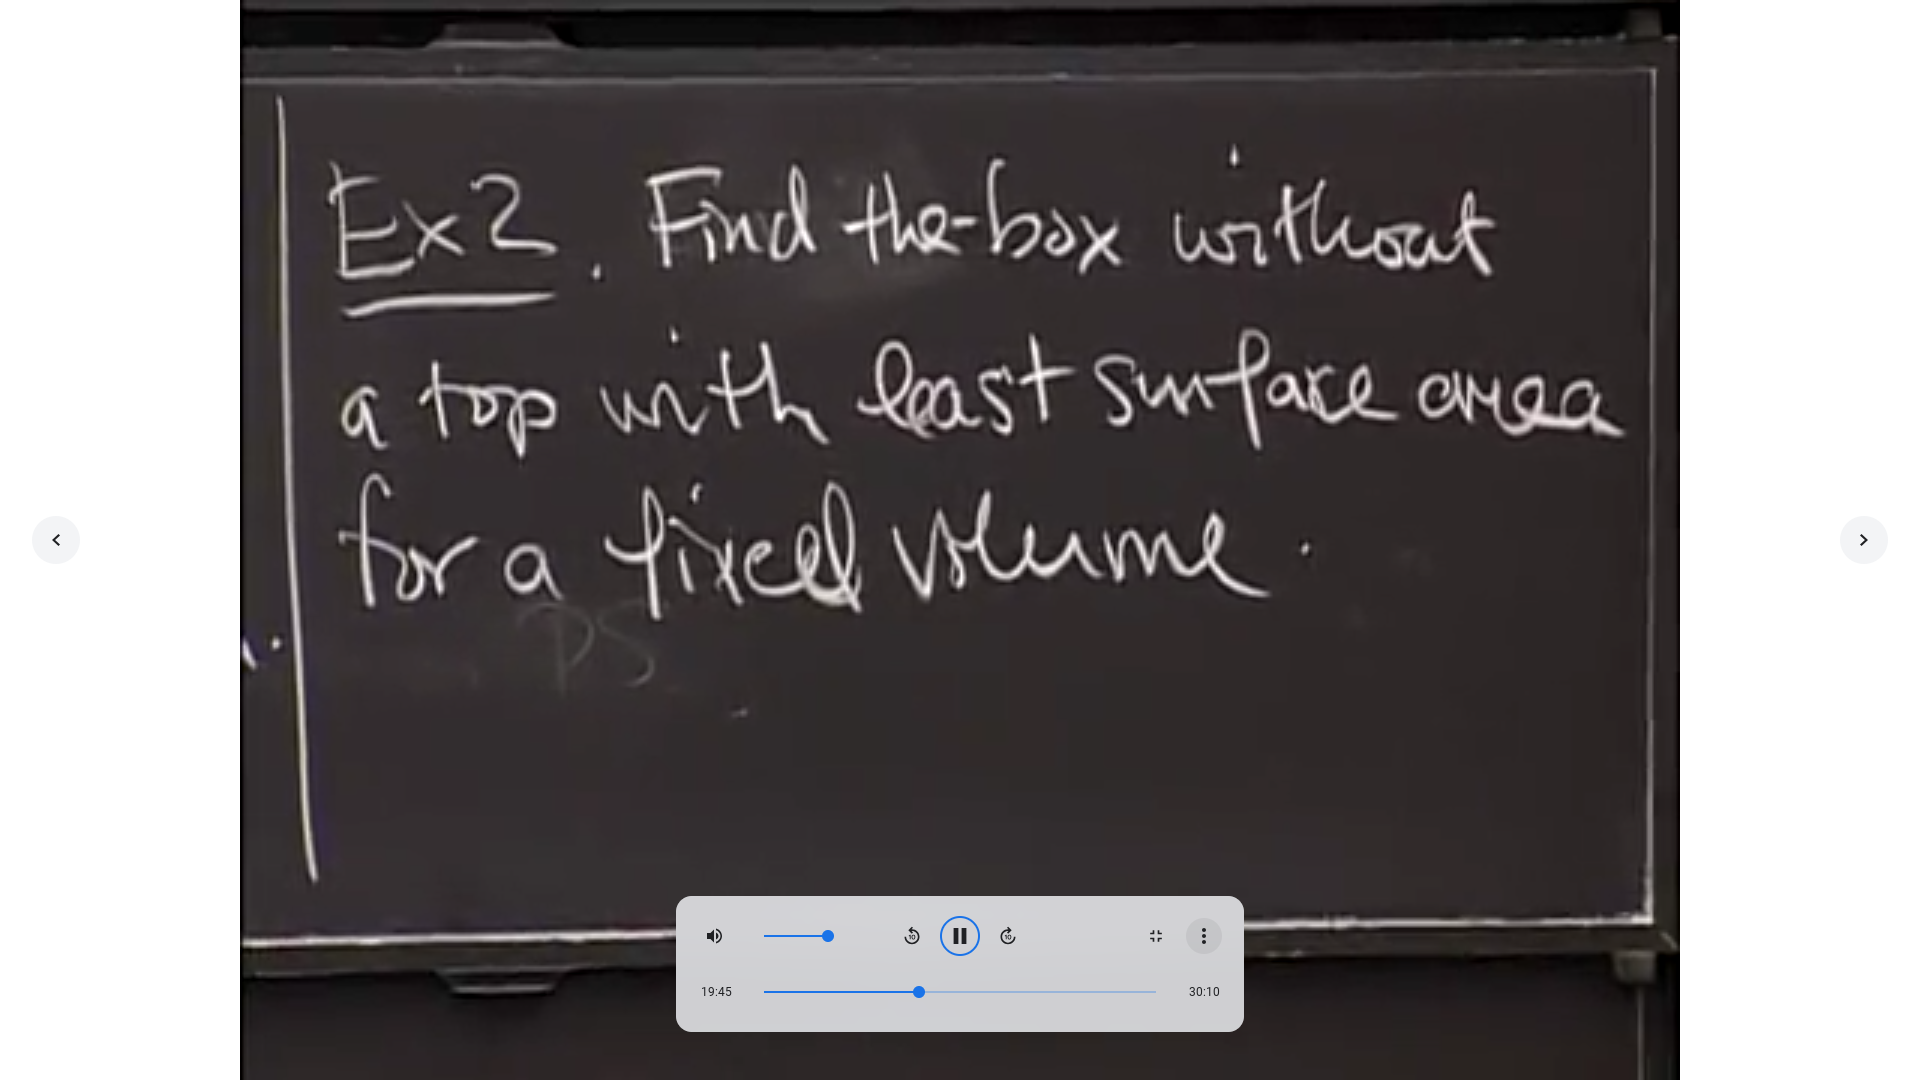 Ex2. Find the box without
a top with least surface area
for a fixed volume.
PS
19:45
30:10